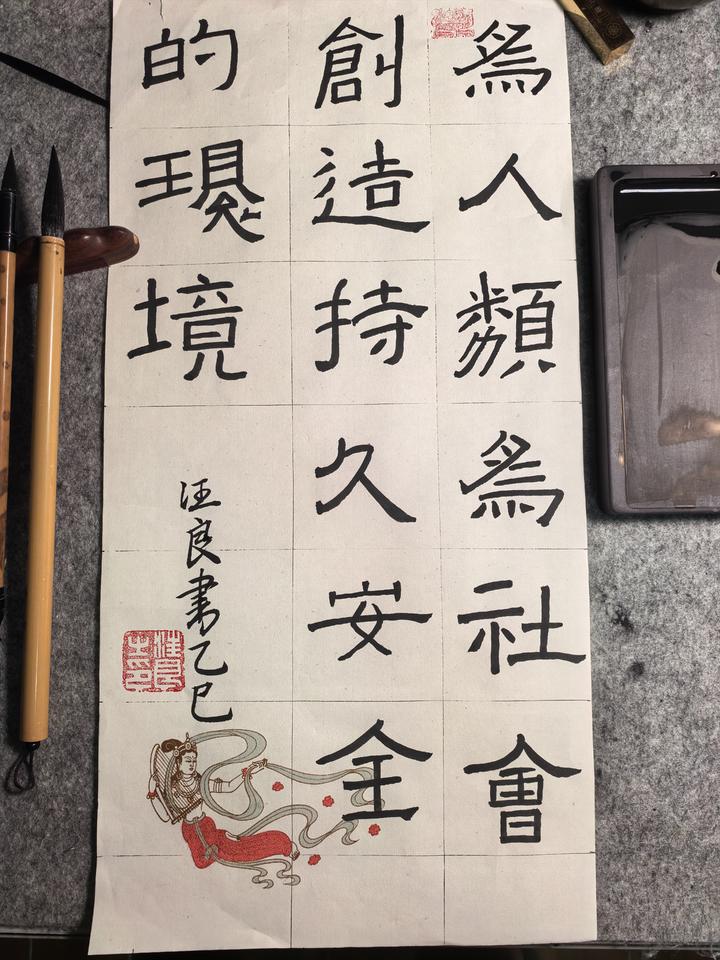 爲人類爲社會
創造持久安全
的環境
汪良書乙巳